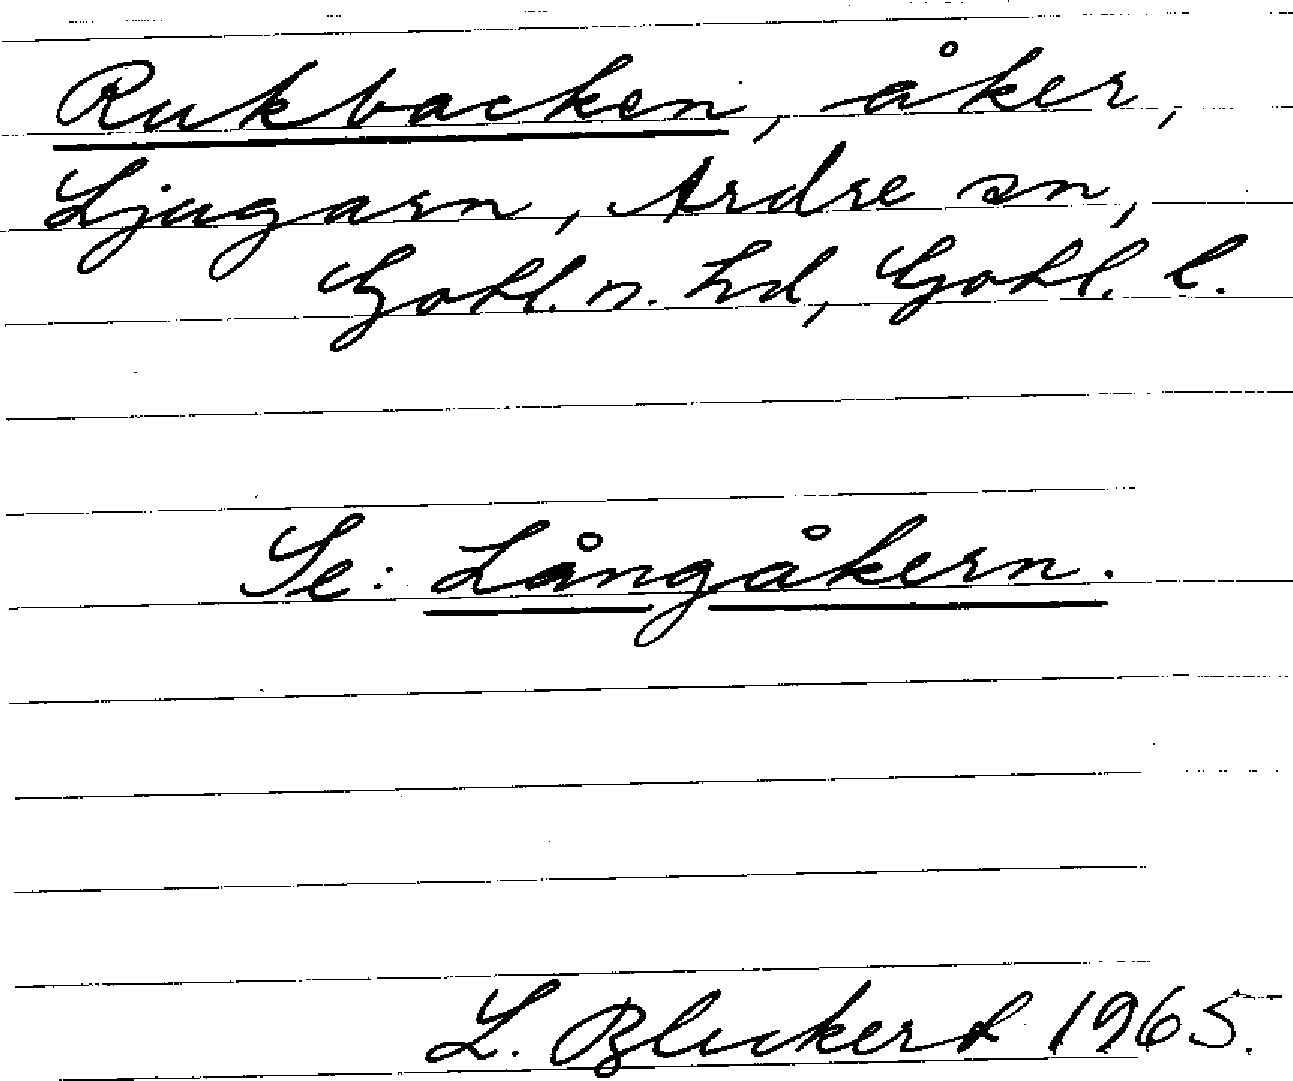 Rukbacken, åker,
Ljugarn, Ardre sn,
Gotl. n. hd, Gotl. l.
Se: Långåkern.
L. Blickert 1965.